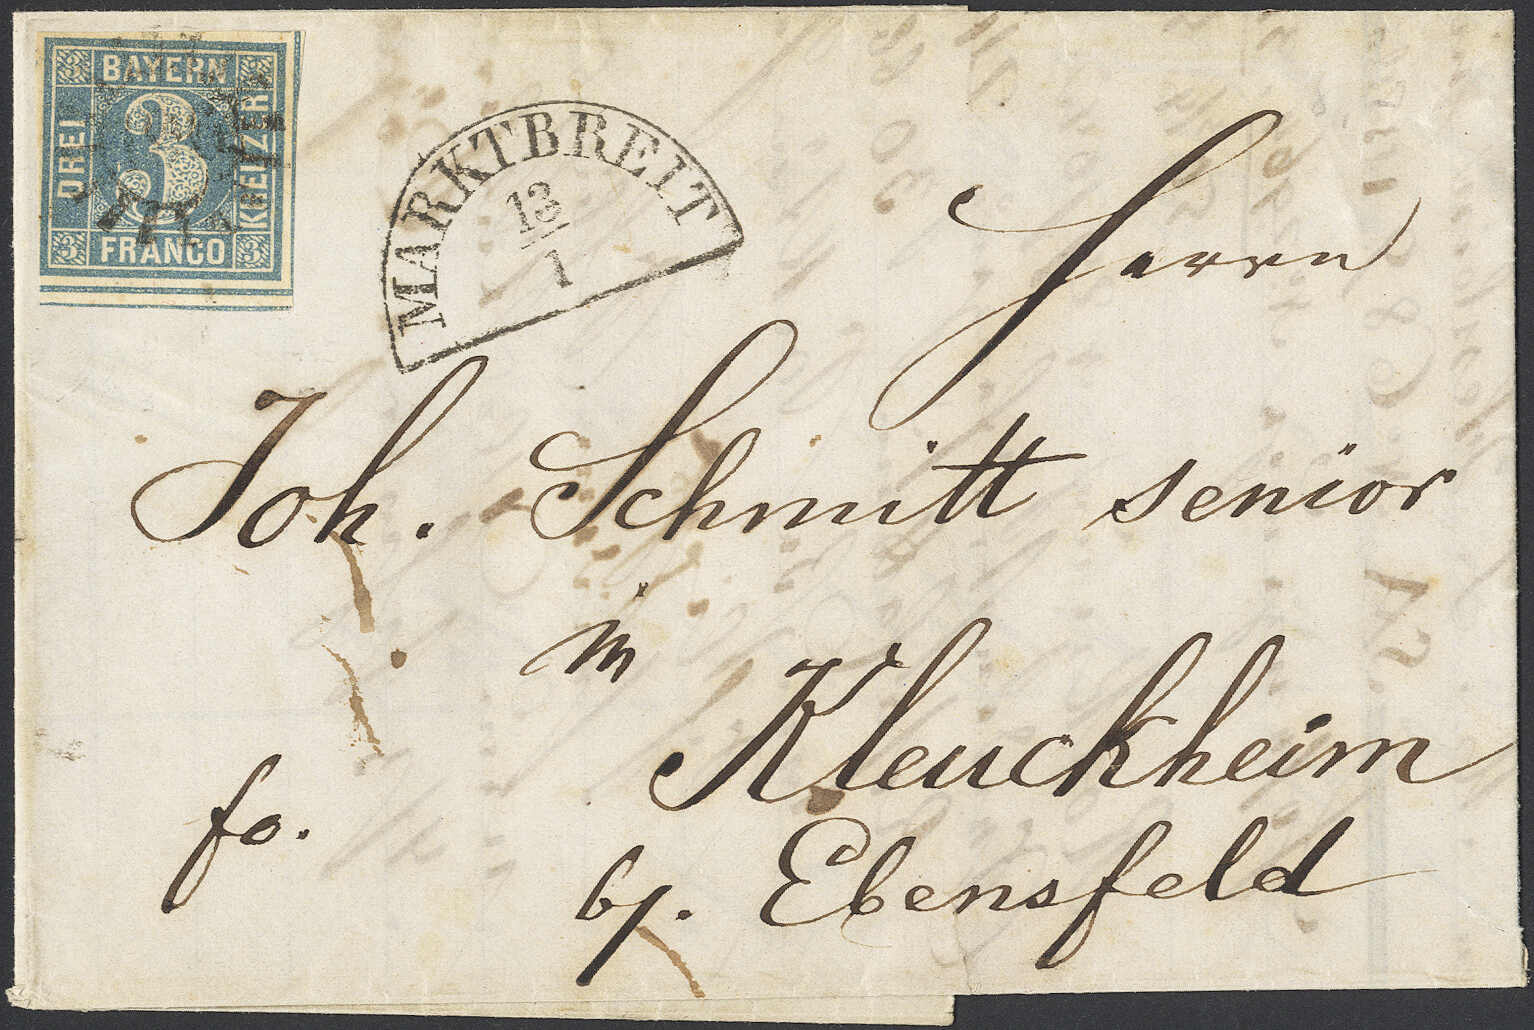 BAYERN
DREI 3 KREUZER
FRANCO
MARKTBREIT
13
1
Herrn
Joh. Schmitt senior
in
Kleuckheim
fo.
b/. Ebensfeld